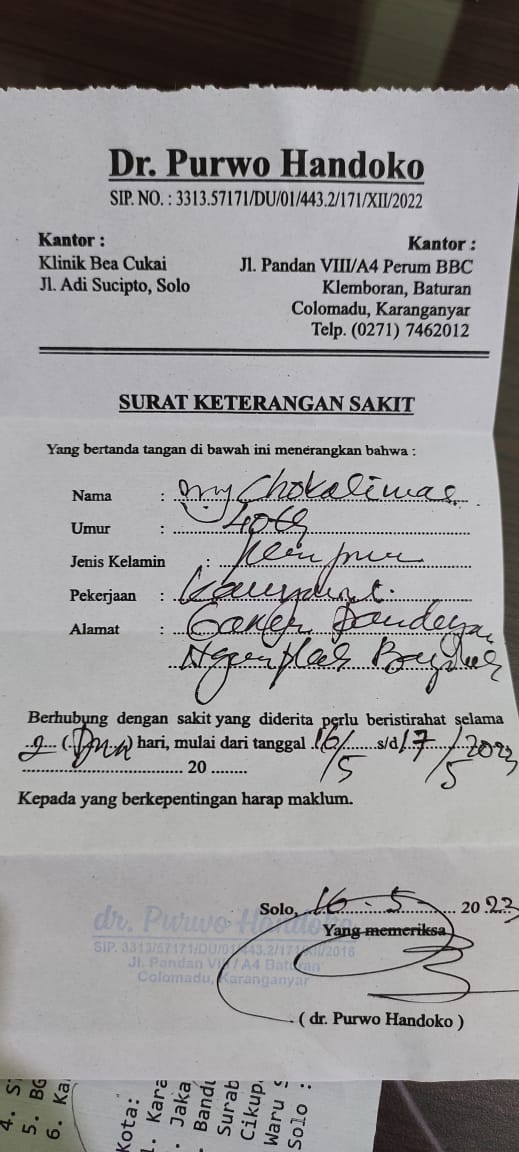 Dr. Purwo Handoko
SIP. NO. : 3313.57171/DU/01/443.2/171/XII/2022
Kantor :
Klinik Bea Cukai
Jl. Adi Sucipto, Solo
Kantor :
Jl. Pandan VIII/A4 Perum BBC
Klemboran, Baturan
Colomadu, Karanganyar
Telp. (0271) 7462012
SURAT KETERANGAN SAKIT
Yang bertanda tangan di bawah ini menerangkan bahwa :
Nama :
Umur : 40th
Jenis Kelamin :
Pekerjaan :
Alamat :
Berhubung dengan sakit yang diderita perlu beristirahat selama
2 (Dua) hari, mulai dari tanggal 16/5 s/d 17/5/2023
20
Kepada yang berkepentingan harap maklum.
Solo, 16-5-2023
Yang memeriksa
dr. Purwo Handoko
SIP. 3313/57171/DU/01/443.2/171/XII/2016
Jl. Pandan VIII / A4 Baturan
Colomadu, Karanganyar
( dr. Purwo Handoko )
5. BG
6. Ka
Kota:
1. Kara
Jaka
Bandu
Surab
Cikup
Waru
Solo :